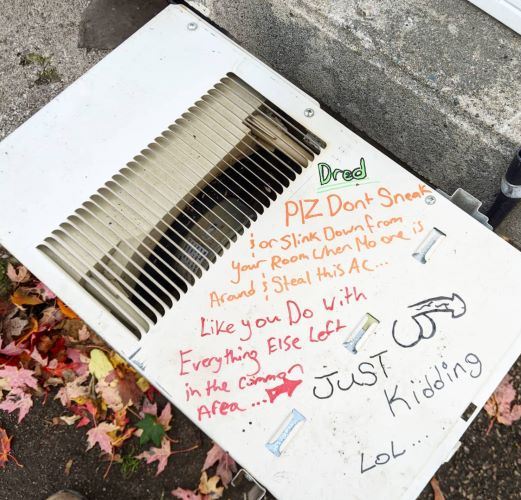 Dred
PlZ Dont Sneak
& or Slink Down From
your Room When No one is
Around & Steal this AC...
Like you Do With
Everything Else Left
in the Common
Area...
JUST
Kidding
LOL...